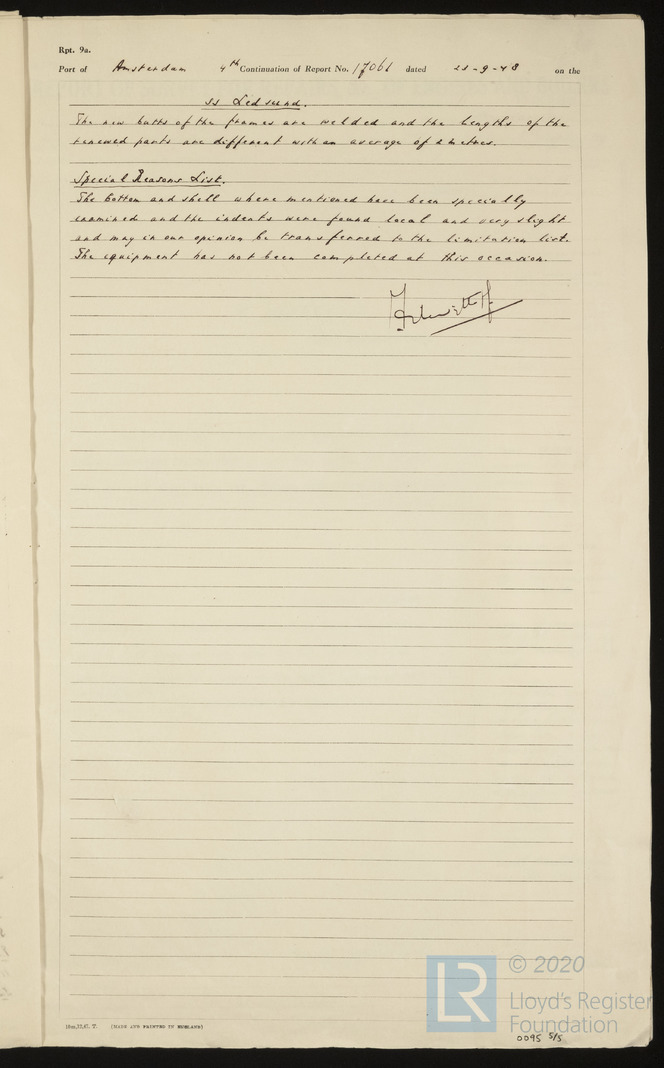 Rpt. 9a.
Port of Amsterdam 4th Continuation of Report No. 17061 dated 23-9-48 on the
ss Ledsund.
The new butts of the frames are welded and the lengths of the
renewed parts are different with an average of 2 metres.
Special Reasons List.
The bottom and shell where mentioned have been specially
examined and the indents were found local and very slight
and may in our opinion be transferred to the limitation list.
The equipment has not been completed at this occasion.
10m,12,47. T. (MADE AND PRINTED IN ENGLAND)
LR © 2020
Lloyd's Register
Foundation
0095 5/5